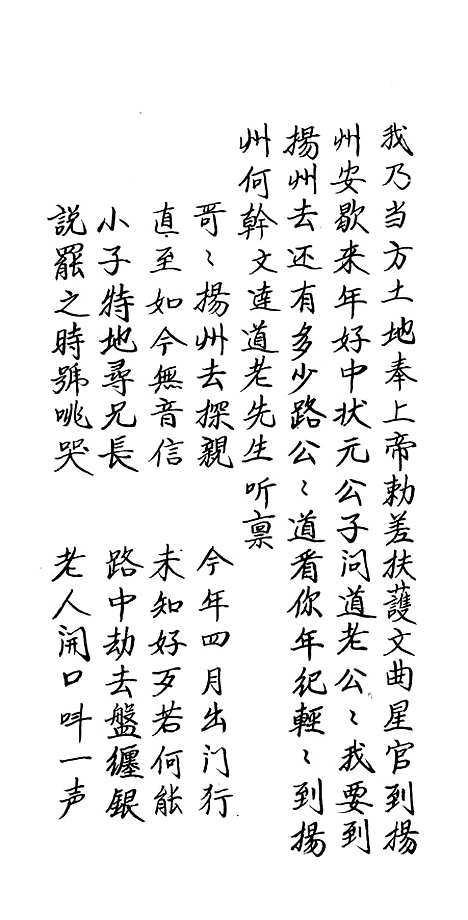 我乃当方土地奉上帝勅差扶護文曲星官到揚
州安歇来年好中状元公子问道老公〻我要到
揚州去还有多少路公〻道看你年纪輕〻到揚
州何幹文達道老先生听禀
哥〻揚州去探親 今年四月出门行
直至如今無音信 未知好歹若何能
小子特地尋兄長 路中劫去盤纏銀
説罷之時號咷哭 老人開口呌一声